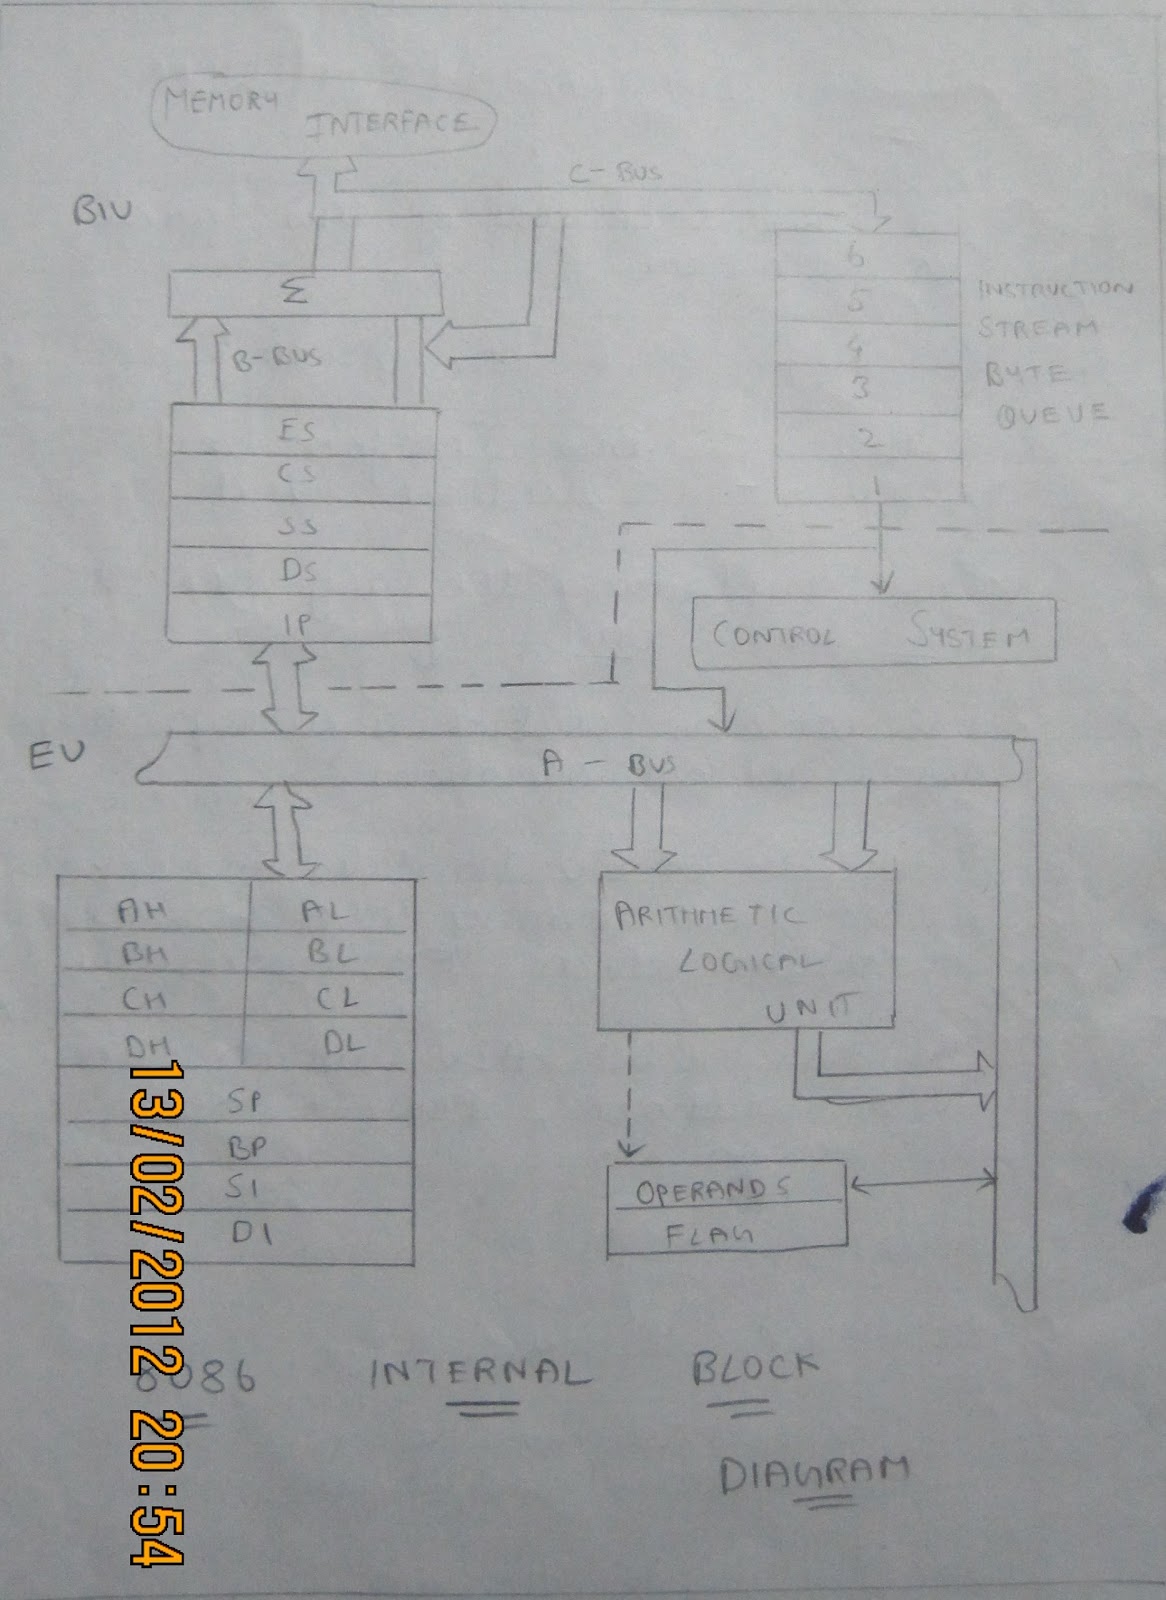 MEMORY
INTERFACE
C-BUS
BIU
6
Σ
5
INSTRUCTION
4
STREAM
B-BUS
3
BYTE
ES
2
QUEUE
CS
1
SS
DS
IP
CONTROL SYSTEM
EU
A - BUS
AH AL
BH BL
CH CL
DH DL
SP
BP
SI
DI
ARITHMETIC
LOGICAL
UNIT
OPERANDS
FLAG
8086 INTERNAL BLOCK
DIAGRAM
13/02/2012 20:54